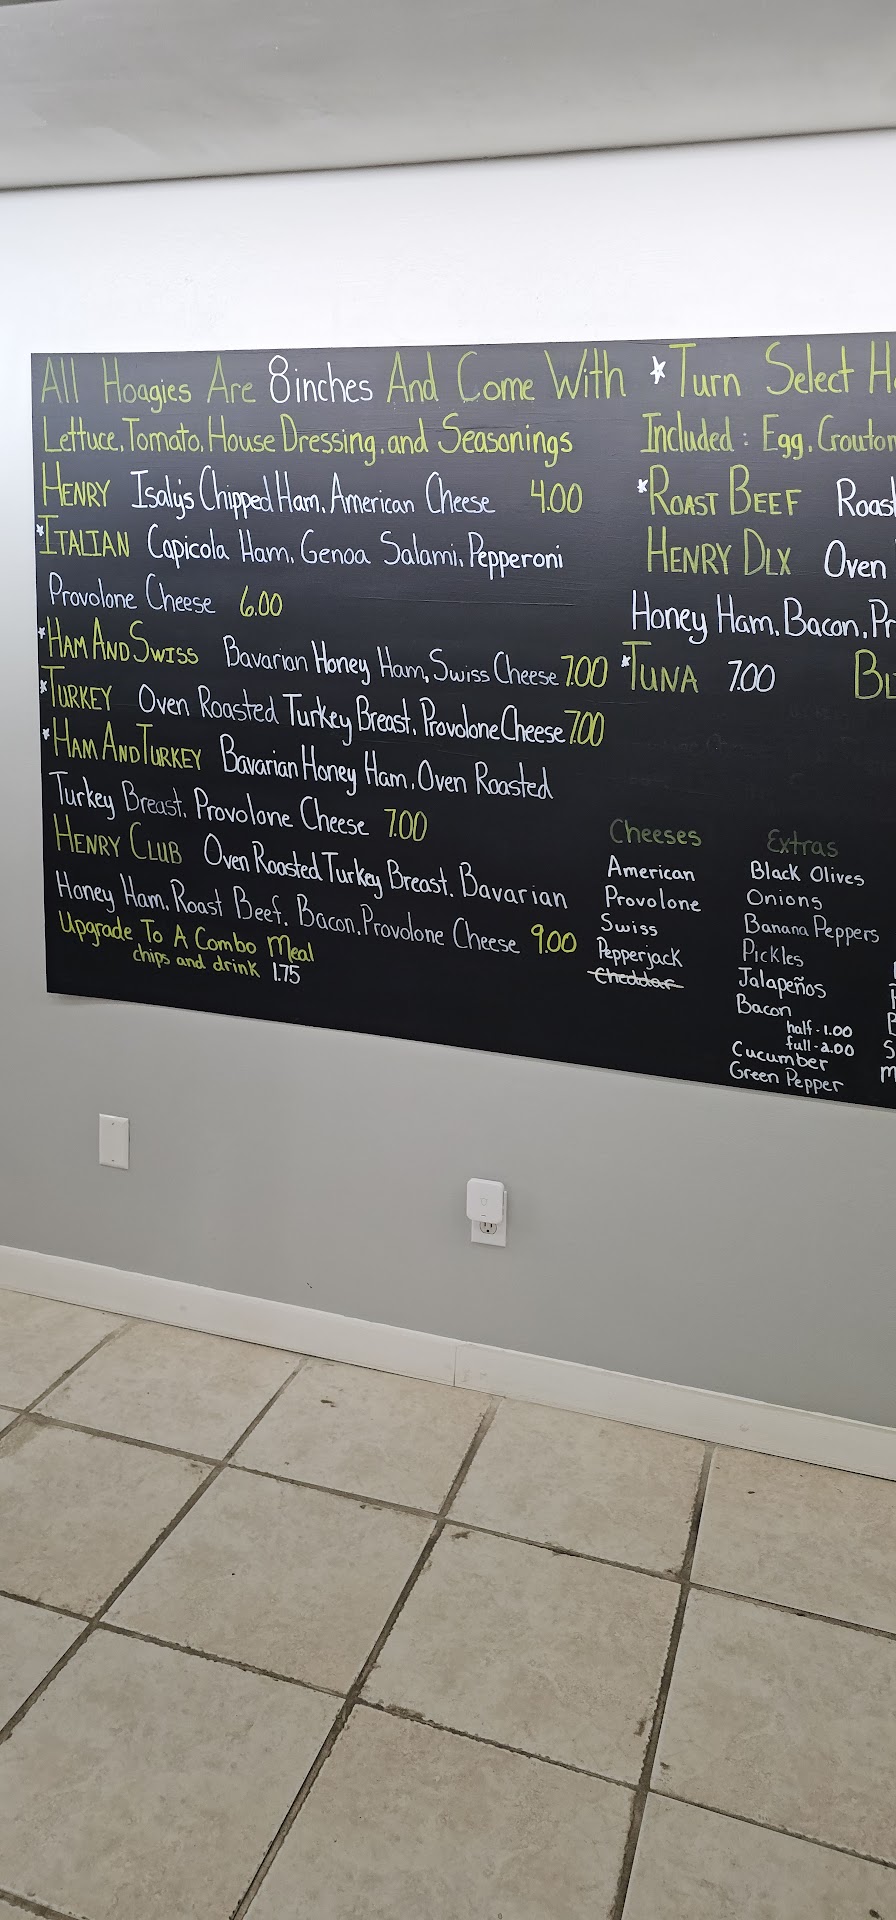 All Hoagies Are 8inches And Come With
Lettuce, Tomato, House Dressing, and Seasonings
HENRY Isaly's Chipped Ham, American Cheese 4.00
*ITALIAN Capicola Ham, Genoa Salami, Pepperoni
Provolone Cheese 6.00
*HAM AND SWISS Bavarian Honey Ham, Swiss Cheese 7.00
*TURKEY Oven Roasted Turkey Breast, Provolone Cheese 7.00
*HAM AND TURKEY Bavarian Honey Ham, Oven Roasted
Turkey Breast, Provolone Cheese 7.00
HENRY CLUB Oven Roasted Turkey Breast, Bavarian
Honey Ham, Roast Beef, Bacon, Provolone Cheese 9.00
Upgrade To A Combo Meal
chips and drink 1.75
*Turn Select H
Included: Egg, Crouton
*ROAST BEEF Roas
HENRY DLX Oven
Honey Ham, Bacon, Pr
*TUNA 7.00
Cheeses
American
Provolone
Swiss
Pepperjack
Cheddar
Extras
Black Olives
Onions
Banana Peppers
Pickles
Jalapeños
Bacon
half - 1.00
full - 2.00
Cucumber
Green Pepper